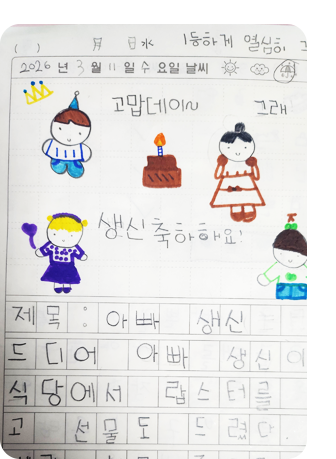 ( ) 月 日 水 1등하게 열심히
2026년 3월 11일 수요일 날씨
고맙데이~ 그래
생신축하해요!
제목: 아빠 생신
드디어 아빠 생신이
식당에서 랍스터를
고 선물도 드렸다.